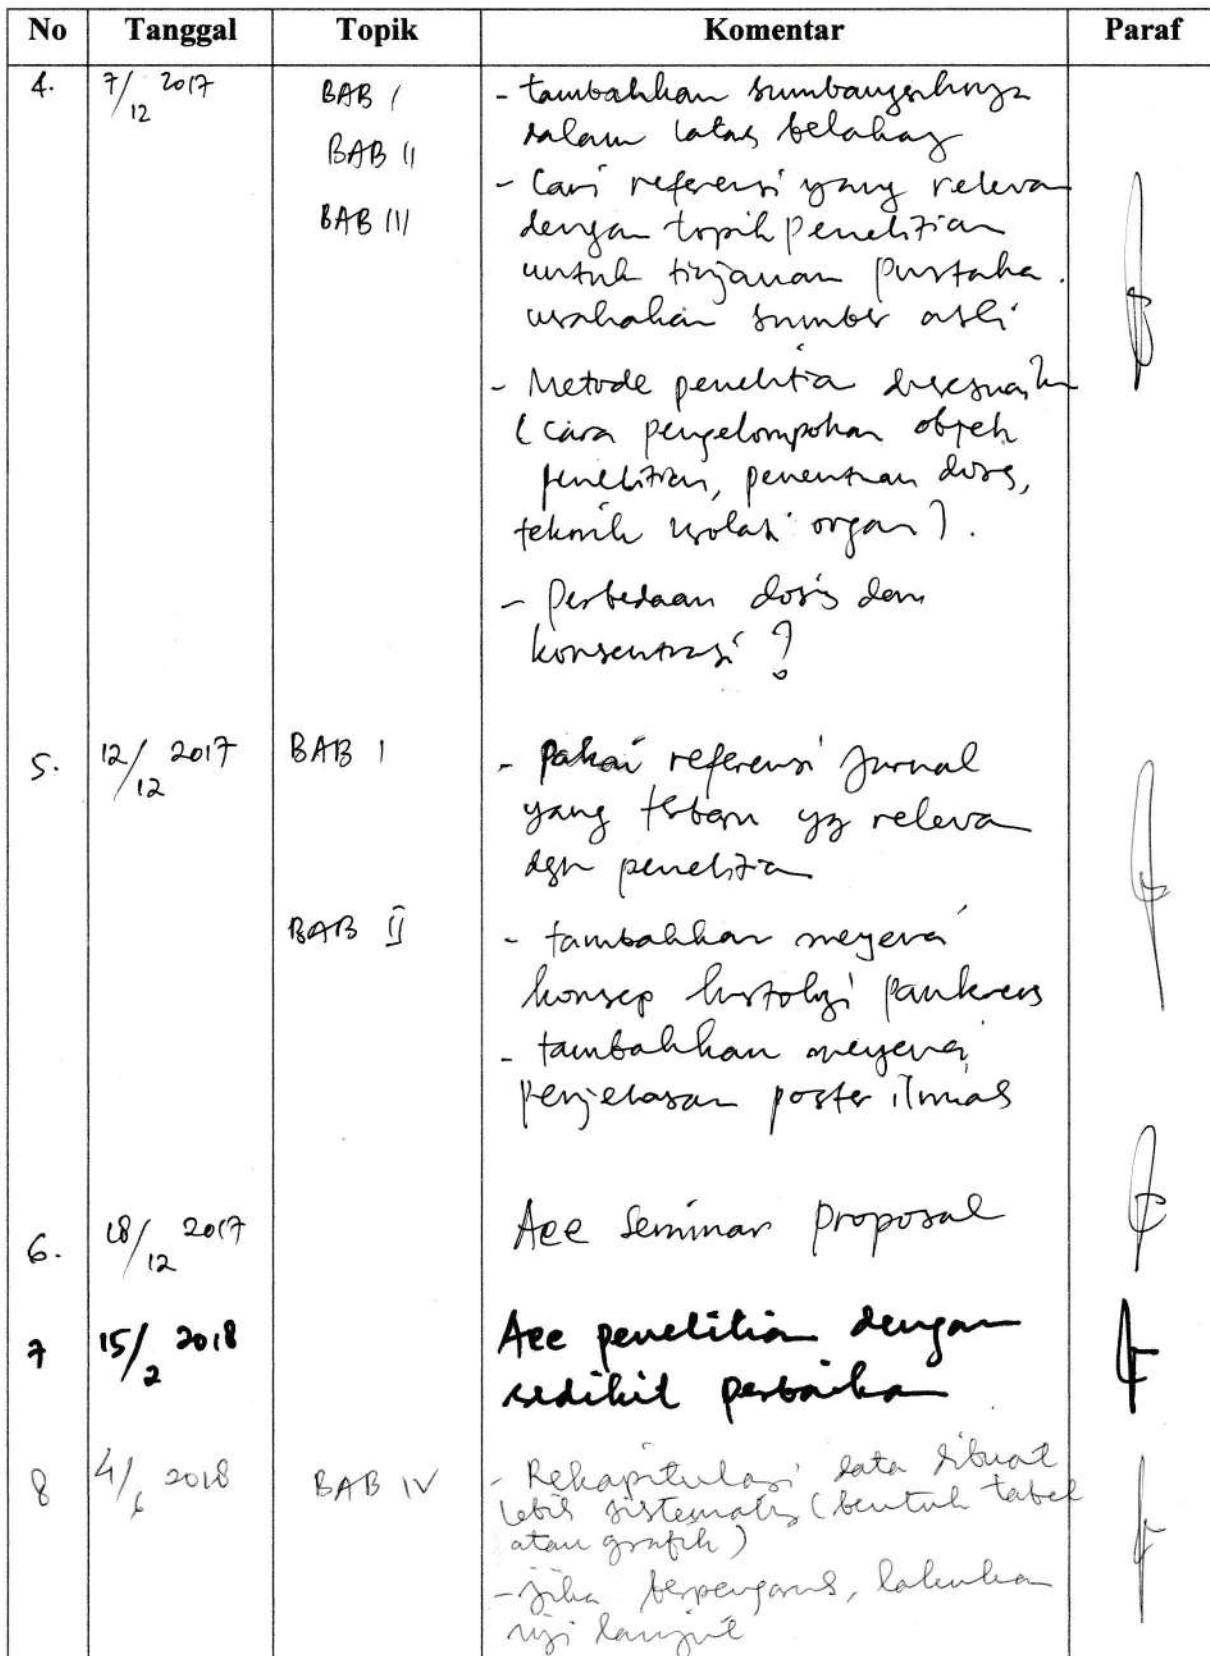 No Tanggal Topik Komentar Paraf
4. 7/12 2017 BAB I - tambahkan sumbangsihnya
dalam latar belakang
BAB II
- Cari referensi yang relevan
BAB III dengan topik penelitian
untuk tinjauan pustaka.
usahakan sumber asli
- Metode penelitian disesuaikan
(cara pengelompokan objek
penelitian, penentuan dosis,
teknik isolasi organ).
- Perbedaan dosis dan
konsentrasi ?
5. 12/12 2017 BAB I - pakai referensi jurnal
yang terbaru yg relevan
dgn penelitian
BAB II - tambahkan mengenai
konsep histologi pankreas
- tambahkan mengenai
penjelasan poster ilmiah
6. 18/12 2017 Acc Seminar Proposal
7 15/2 2018 Acc penelitian dengan
sedikit perbaikan
8 4/6 2018 BAB IV - Rekapitulasi data dibuat
lebih sistematis (bentuk tabel
atau grafik)
- jika berpengaruh, lakukan
uji lanjut